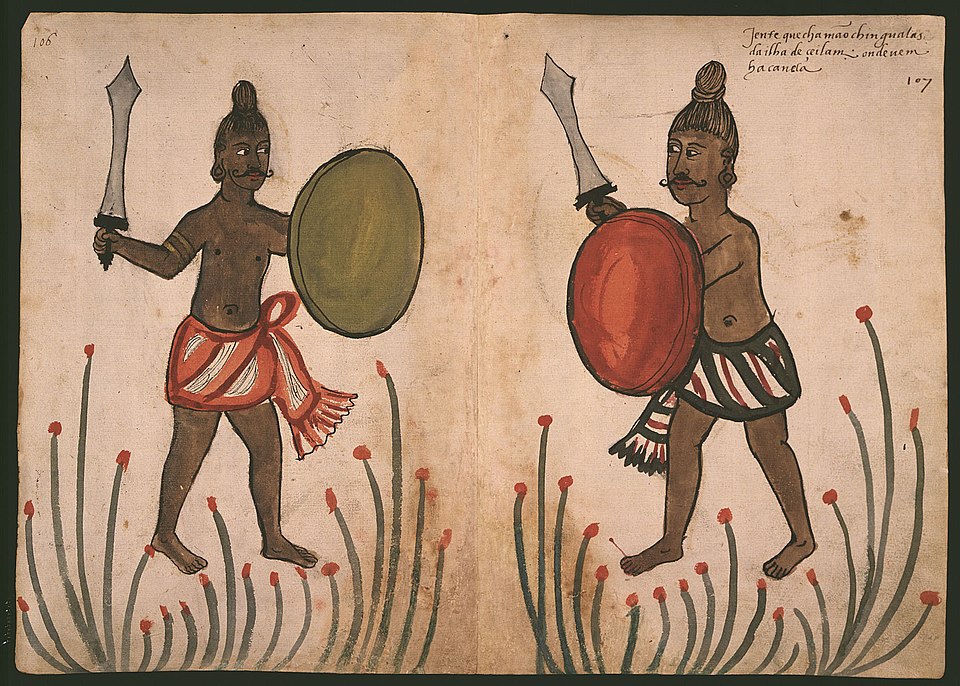 106
Jente que chamão chingualas
da ilha de ceilam: onde vem
ha canela
107